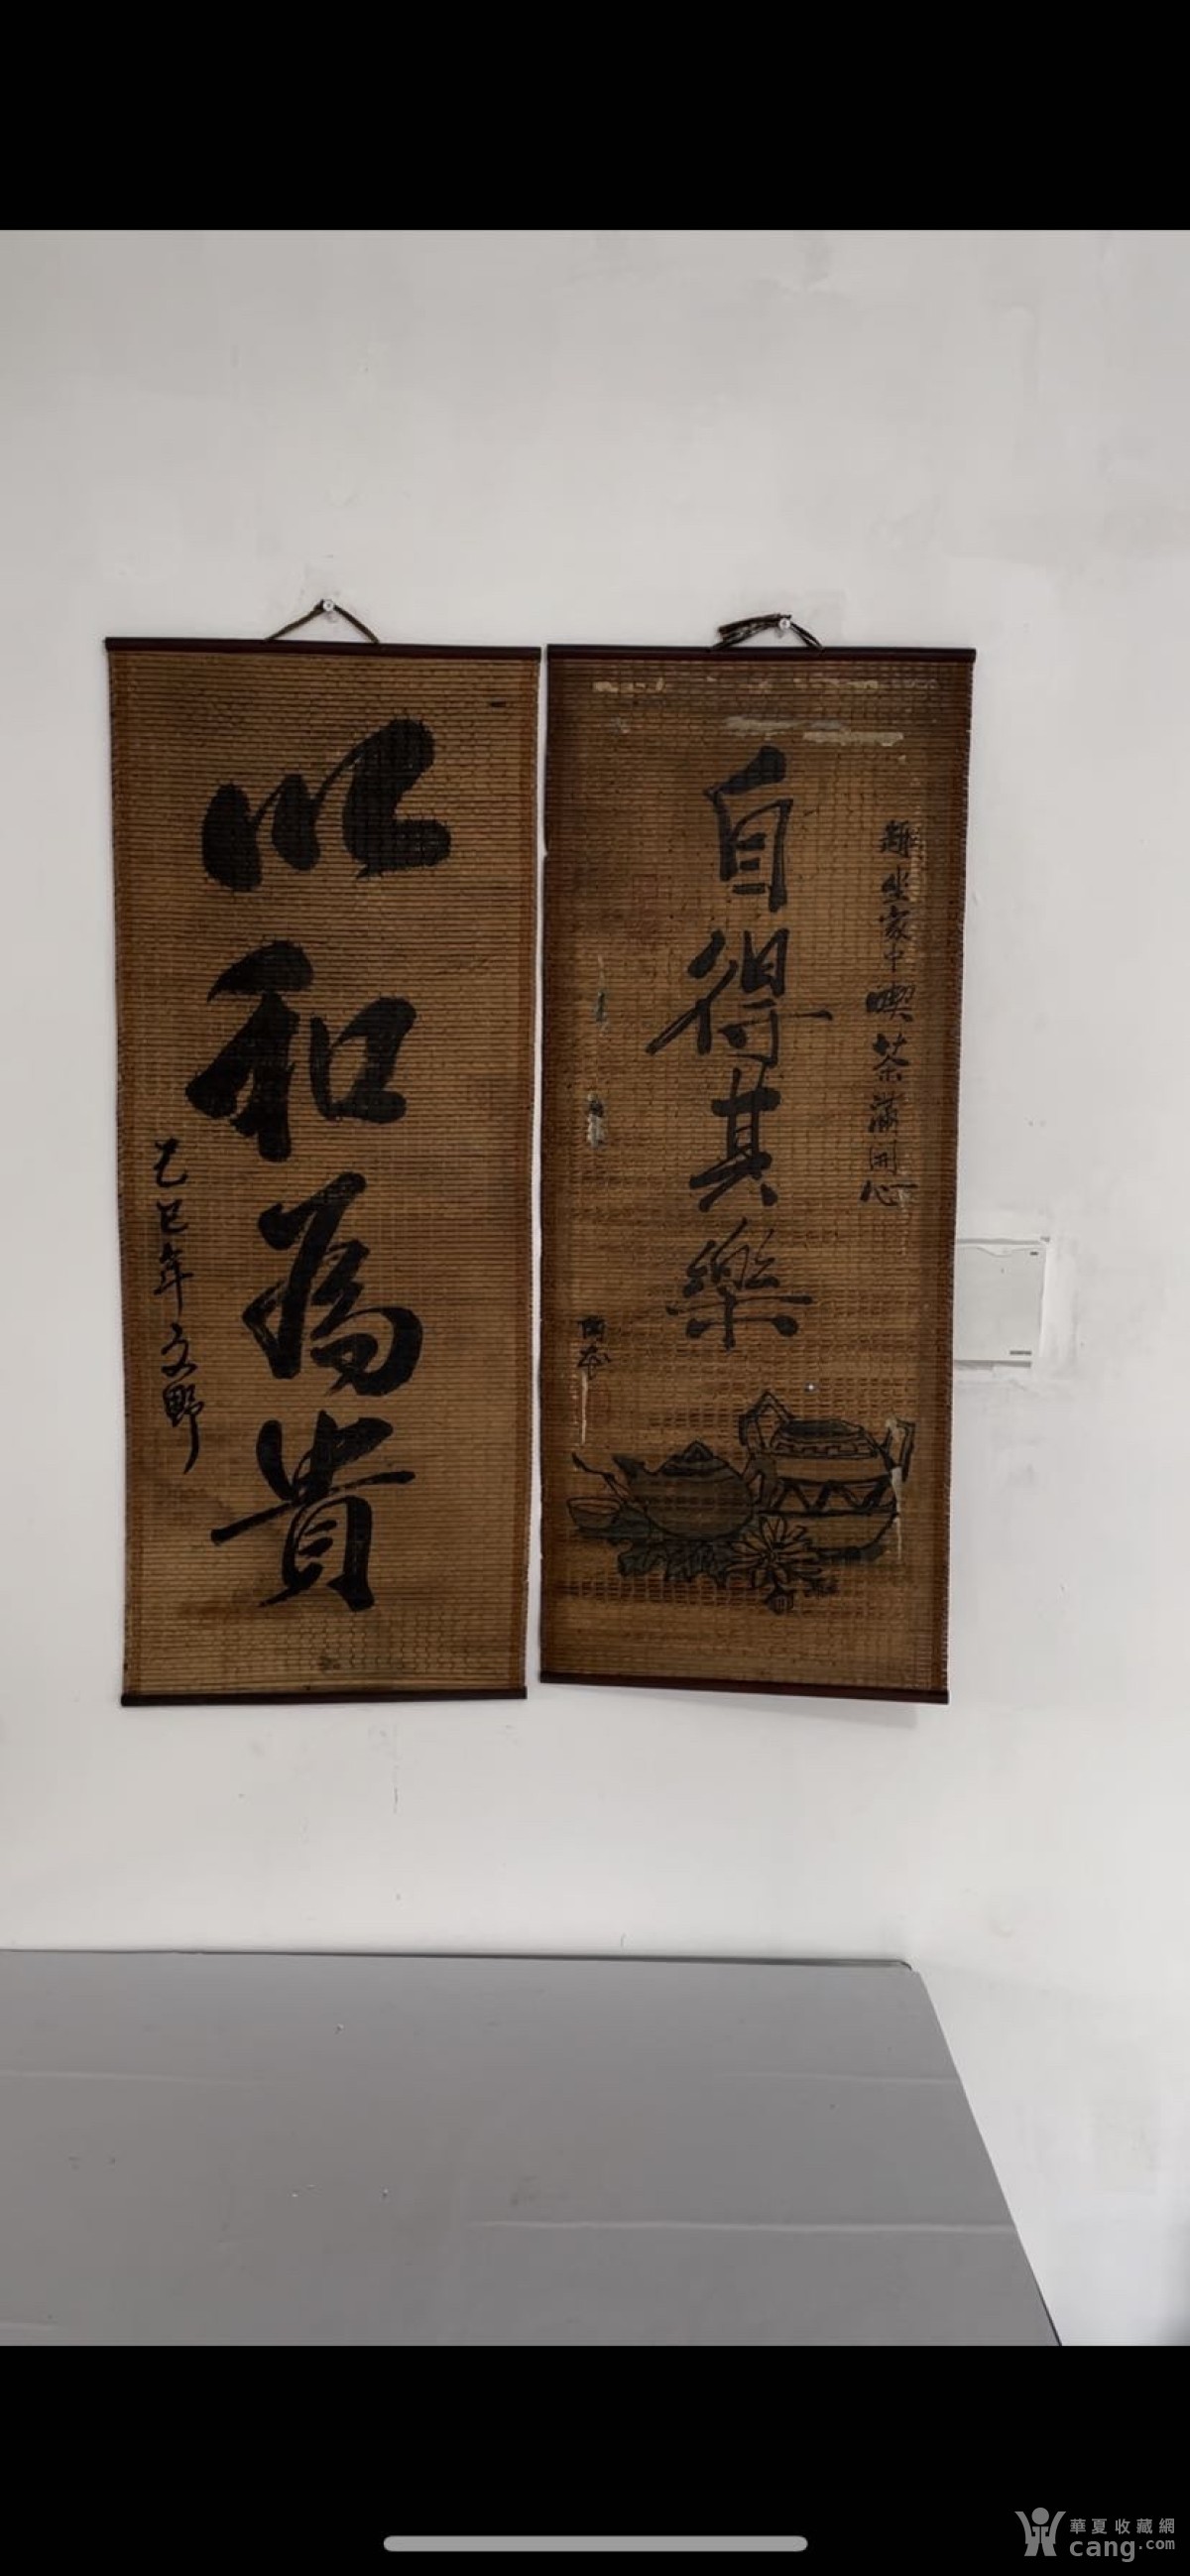 以和為貴
乙巳年 文野
趣坐家中喫茶滿開心
自得其樂
華夏收藏網
cang.com